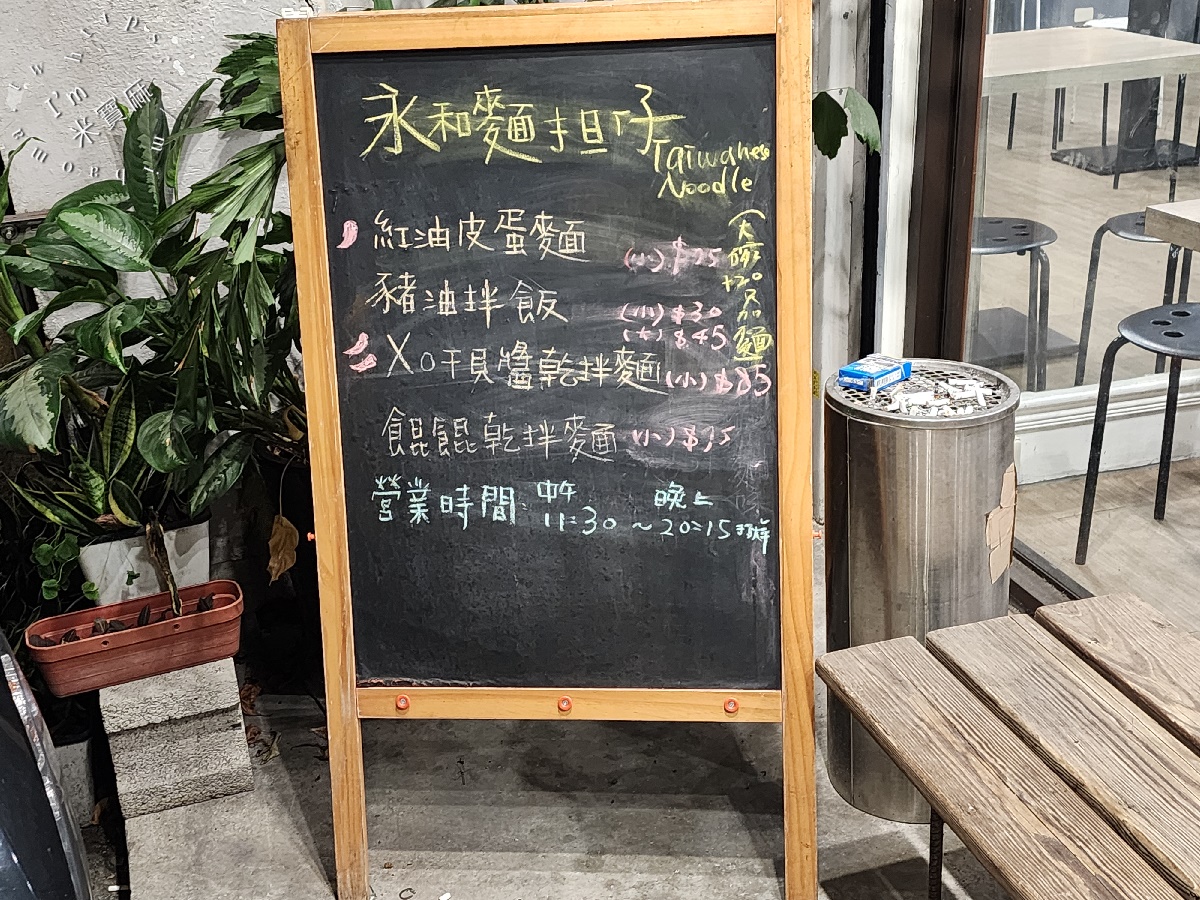 永和麵担仔
Taiwanese
Noodle
紅油皮蛋麵 (小) $75
豬油拌飯 (小) $30
(大) $45
XO干貝醬乾拌麵 (小) $85
餛餛乾拌麵 (小) $75
(大碗
+20
只加
麵
營業時間: 中午 晚上
11:30 ~ 20:15
I'm
米寶麻